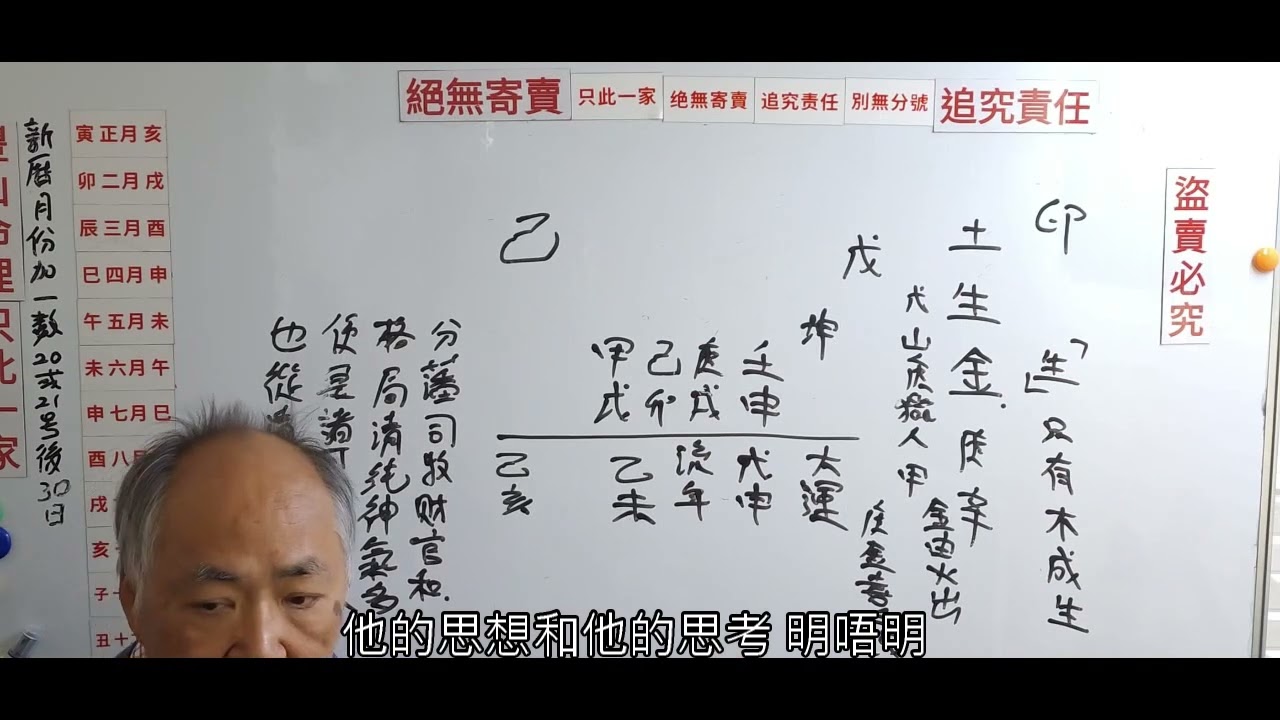 絕無寄賣
只此一家
绝無寄賣
追究责任
別無分號
追究責任
盜賣必究
只此一家
新曆月份加一數20或21号後30日
寅正月亥
卯二月戌
辰三月酉
巳四月申
午五月未
未六月午
申七月巳
酉八
戌
亥
子十
丑十
印
「生」只有木成生
土生金.庚辛
戊山庚嶽人甲
金由火出
戊
坤
壬申
庚戌
己卯
甲戌
大運
戊申
流年
己未
己亥
己
分藩司牧财官和.
格局清纯神氣多
便是諸
也從
他的思想和他的思考 明唔明